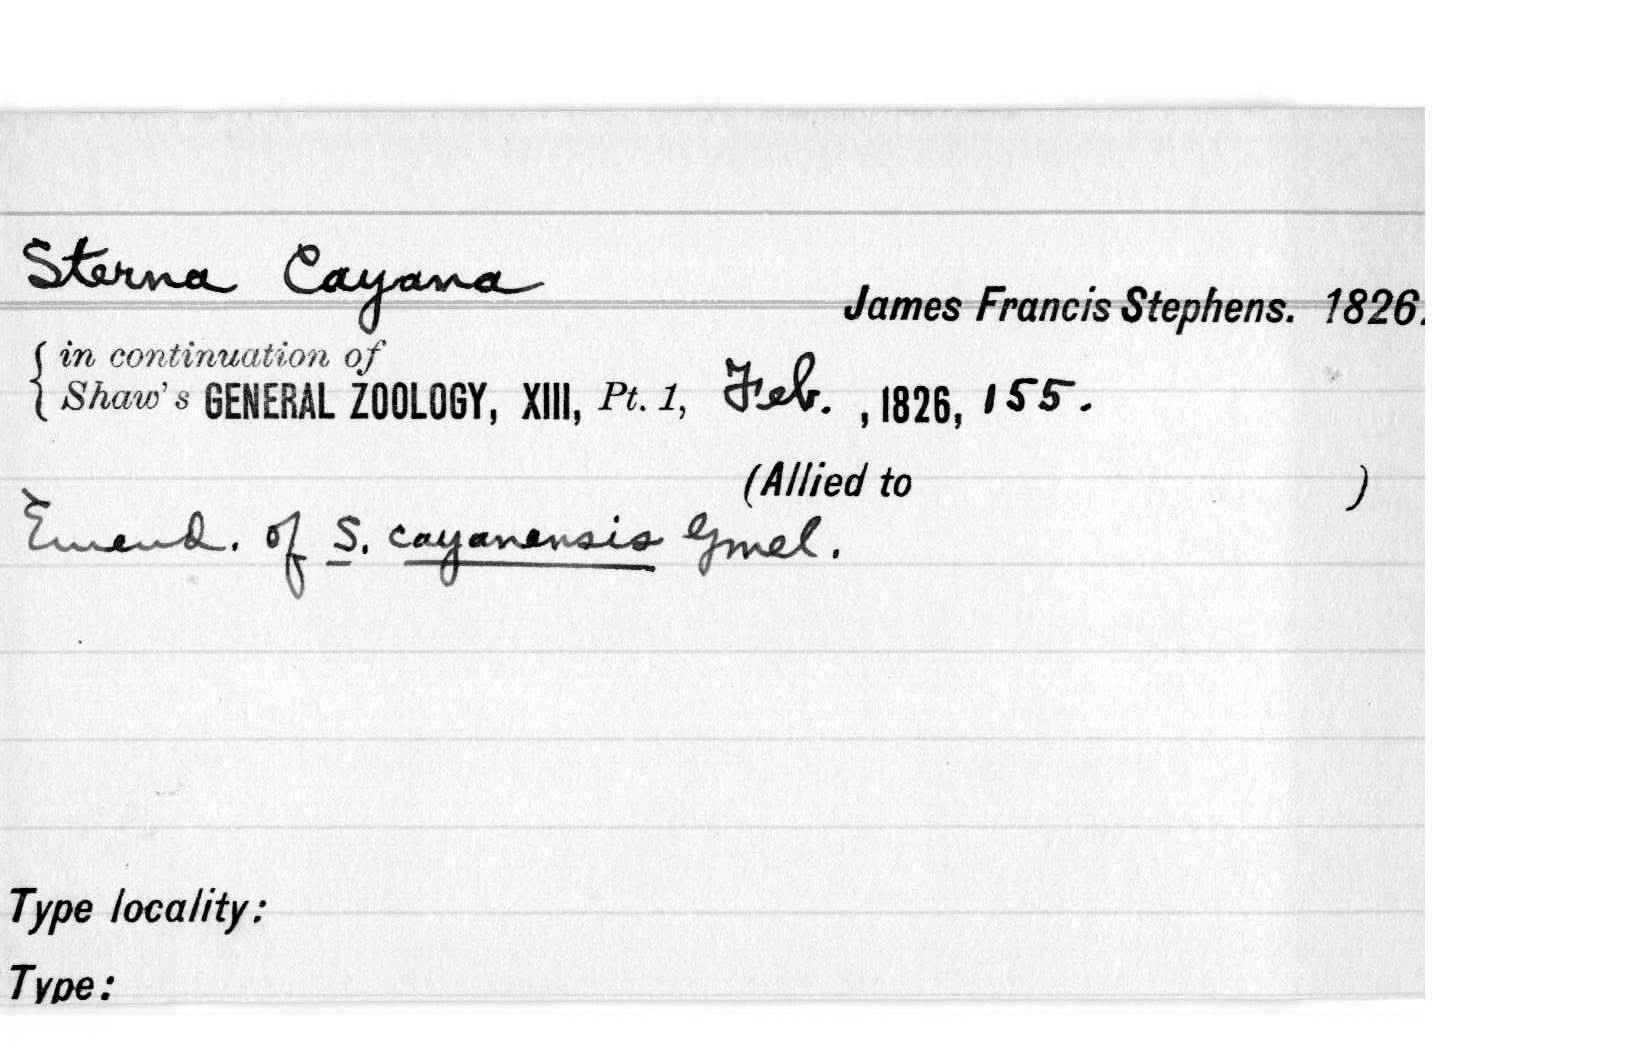 Sterna Cayana
James Francis Stephens. 1826.
{ in continuation of
Shaw's GENERAL ZOOLOGY, XIII, Pt. 1, Feb. , 1826, 155.
(Allied to )
Emend. of S. cayanensis Gmel.
Type locality:
Type: